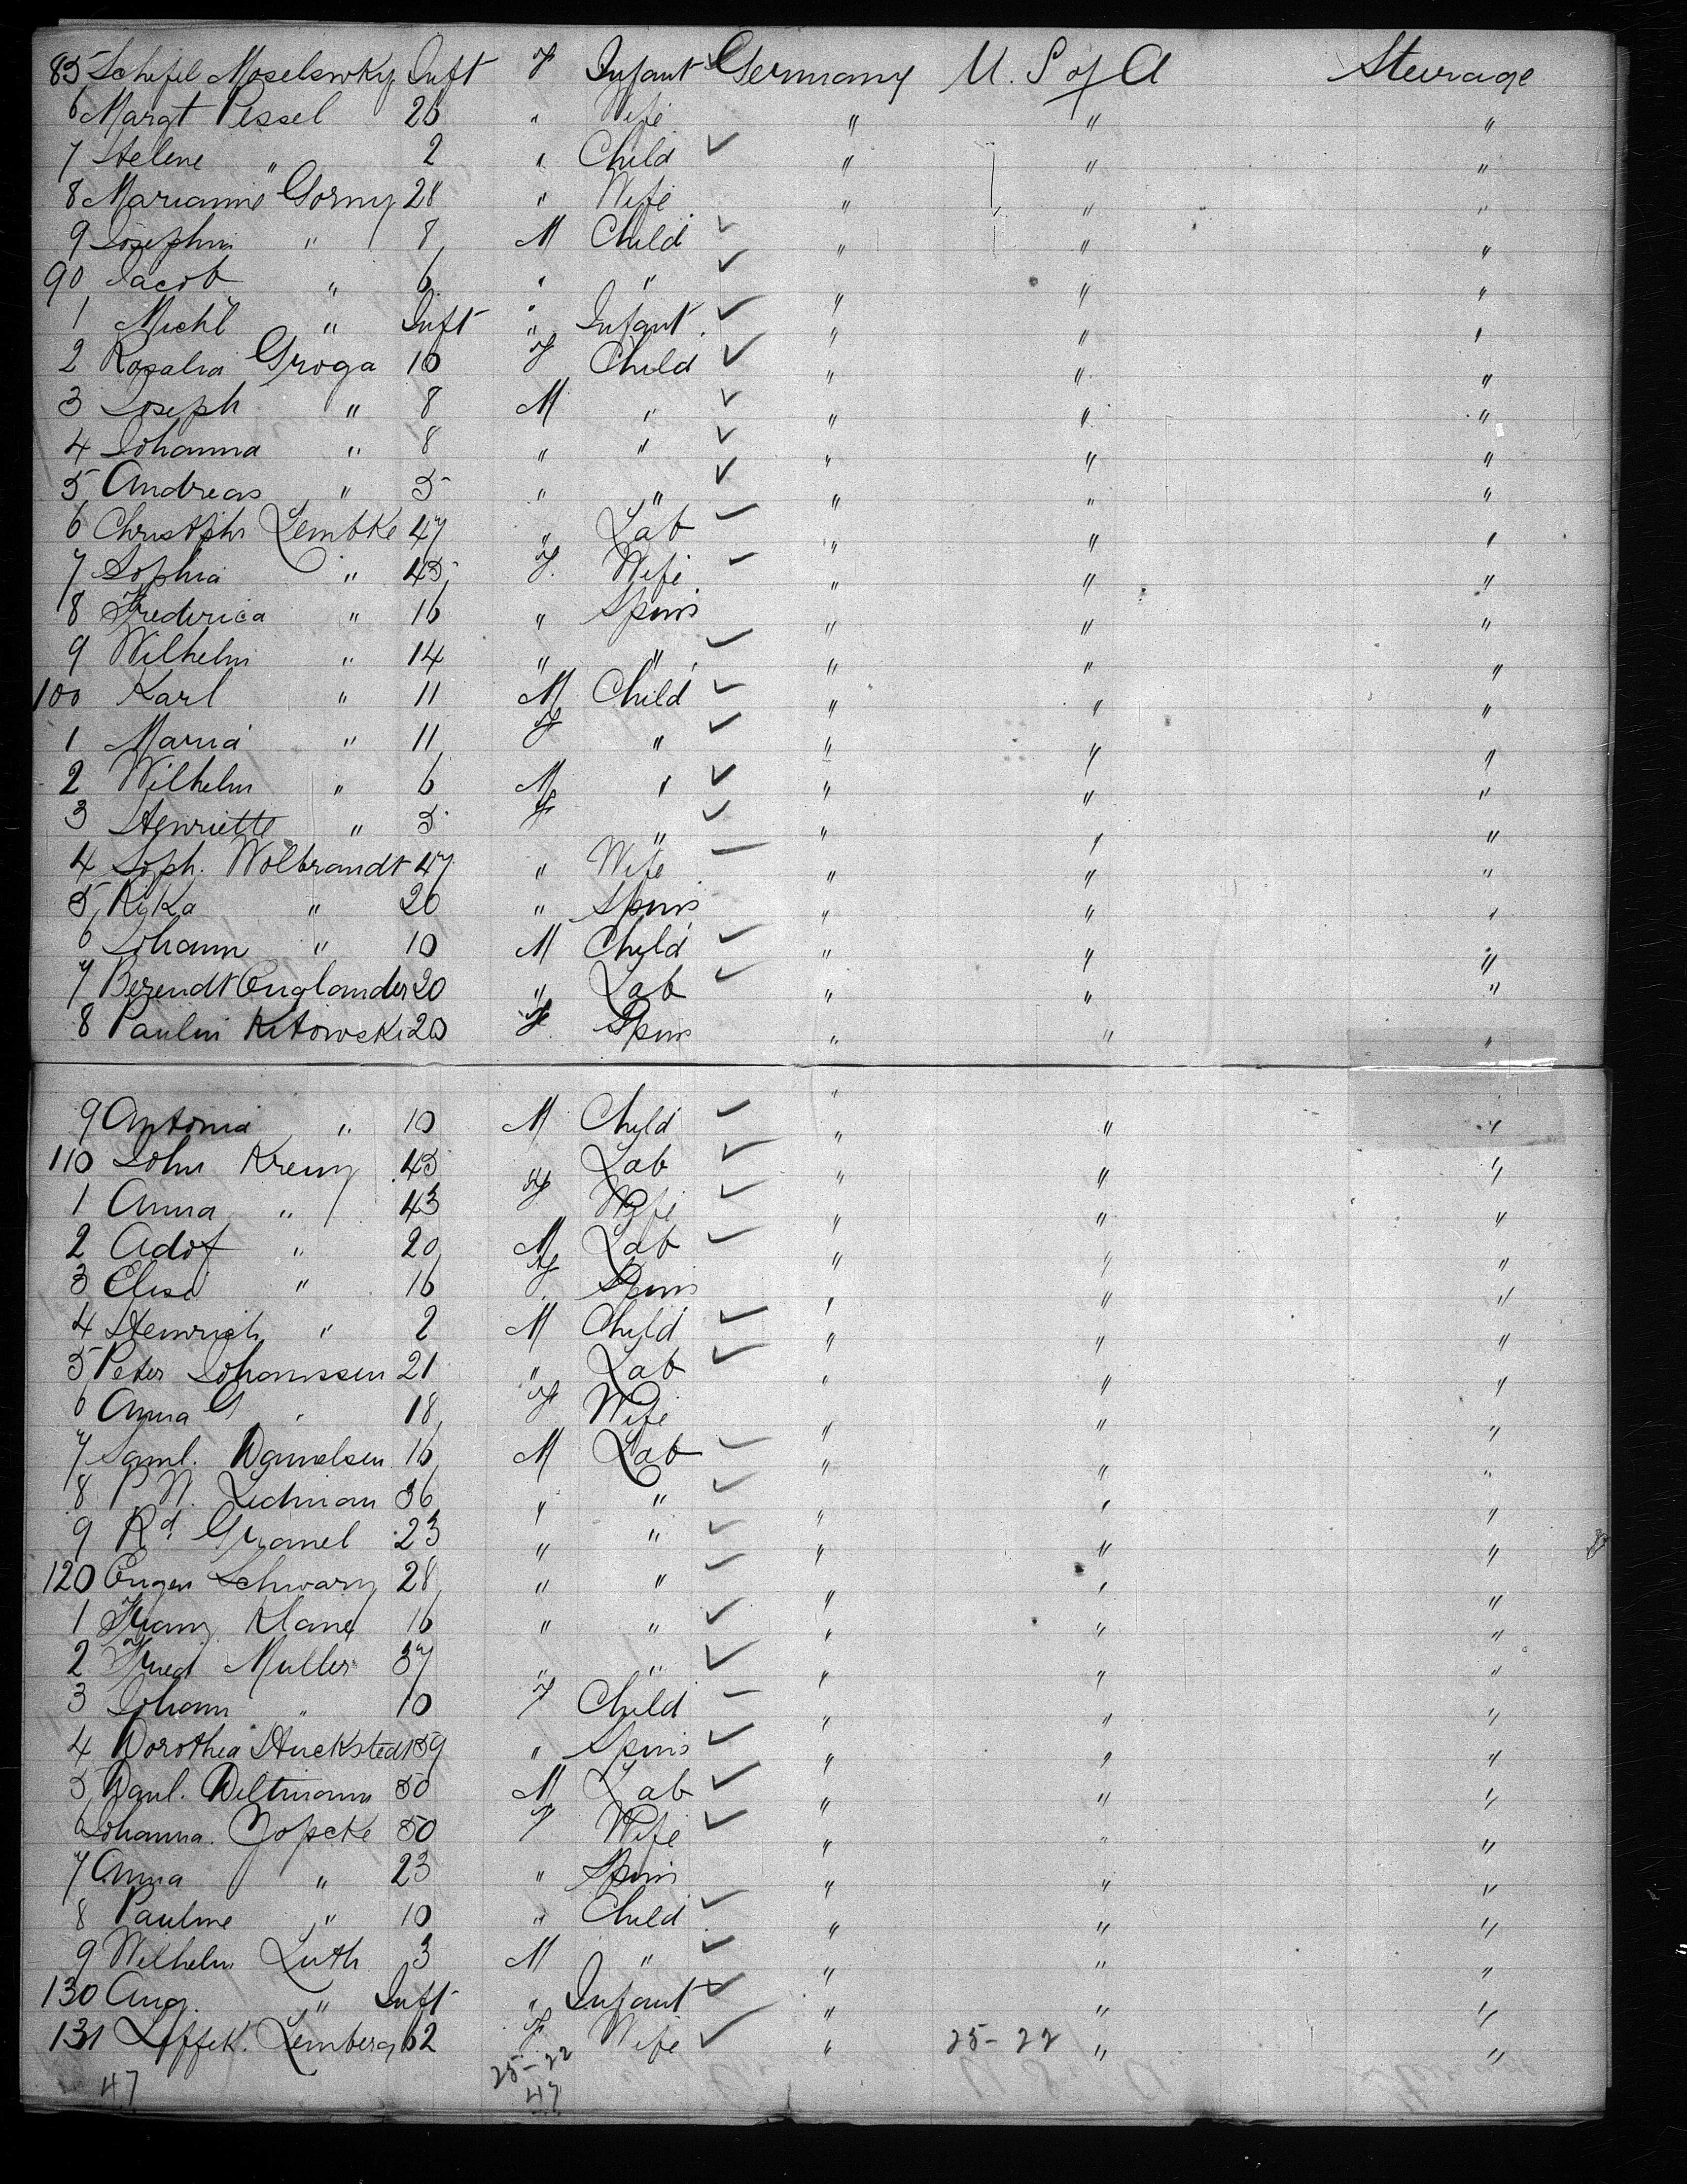 85 Schefel Moselswky Inft F Infant Germany U. S of A Steerage
6 Margt Pessel 26 " Wife " " "
7 Helene " 2 " Child " " "
8 Marianne Gorny 28 " Wife " " "
9 Josephin " 8 M Child " " "
90 Jacob " 6 " " " " "
1 Michl " Inft " Infant " " "
2 Rosalia Groga 10 F Child " " "
3 Joseph " 8 M " " " "
4 Johanna " 8 " " " " "
5 Andreas " 5 " " " " "
6 Christphr Lembke 47 " Lab " " "
7 Sophia " 45 F. Wife " " "
8 Frederica " 16 " Spins " " "
9 Wilhelm " 14 " " " " "
100 Karl " 11 M Child " " "
1 Maria " 11 F " " " "
2 Wilhelm " 6 M " " " "
3 Henriette " 5 F " " " "
4 Soph. Wolbrandt 47 " Wife " " "
5 Rika " 20 " Spins " " "
6 Johann " 10 M Child " " "
7 Berendt Englander 20 " Lab " " "
8 Paulin Kitowski 20 F. Spins " " "
9 Antonia " 10 M Child " " "
110 John Kreuz 45 " Lab " " "
1 Anna " 43 F Wife " " "
2 Adof " 20 M Lab " " "
3 Elise " 16 F. Spins " " "
4 Heinrich " 2 M Child " " "
5 Peter Johannssen 21 " Lab " " "
6 Anna " 18 F Wife " " "
7 Saml. Danielsen 16 M Lab " " "
8 P. N. Ledman 36 " " " " "
9 Rd. Granel 23 " " " " "
120 Eugen Schwarz 28 " " " " "
1 Franz Klane 16 " " " " "
2 Fried Muller 37 " " " " "
3 Johann " 10 F Child " " "
4 Dorothea Huckstedt 59 " Spins " " "
5 Danl. Deltmann 50 M Lab " " "
6 Johanna. Zopcke 50 F Wife " " "
7 Anna " 23 " Spins " " "
8 Pauline " 10 " Child " " "
9 Wilhelm Luth 3 M " " " "
130 Aug. " Inft " Infant " " "
131 Lemberg 62 F. Wife " 25-22 " "
47 25-22
47